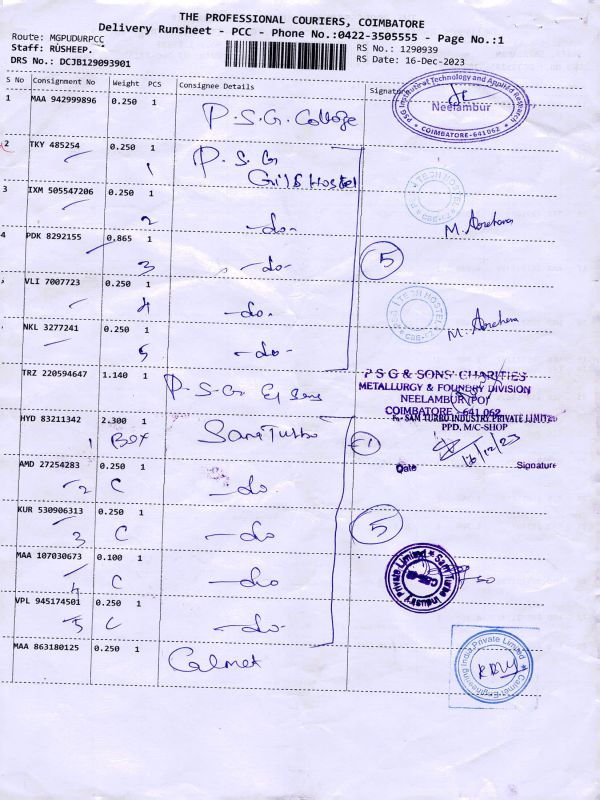 THE PROFESSIONAL COURIERS, COIMBATORE
Delivery Runsheet - PCC - Phone No.:0422-3505555 - Page No.:1
Route: MGPUDURPCC
RS No.: 1290939
Staff: RUSHEEP.
RS Date: 16-Dec-2023
DRS No.: DCJB129093901
S No Consignment No Weight PCS Consignee Details Signature
1 MAA 942999896 0.250 1 P.S.G. College
PSG Institute of Technology and Applied Research
Neelambur
COIMBATORE-641062
2 TKY 485254 0.250 1 P.S.G
1 Girls Hostel
3 IXM 505547206 0.250 1
2 -do-
M.
4 PDK 8292155 0.865 1
3 -do- 5
VLI 7007723 0.250 1
4 -do-
M.
NKL 3277241 0.250 1
5 -do-
TRZ 220594647 1.140 1 P.S.G & Sons
P S G & SONS' CHARITIES
METALLURGY & FOUNDRY DIVISION
NEELAMBUR (PO)
COIMBATORE - 641 062
HYD 83211342 2.300 1 Sam Turbo
1 Box
For SAM TURBO INDUSTRY PRIVATE LIMITED
PPD, M/C-SHOP
16/12/23
Date Signature
AMD 27254283 0.250 1
2 C -do
KUR 530906313 0.250 1
3 C -do 5
MAA 107030673 0.100 1
4 C -do
Sam Turbo Industry Private Limited
VPL 945174501 0.250 1
5 C -do-
MAA 863180125 0.250 1 Calmet
Calmet Engineering India Private Limited